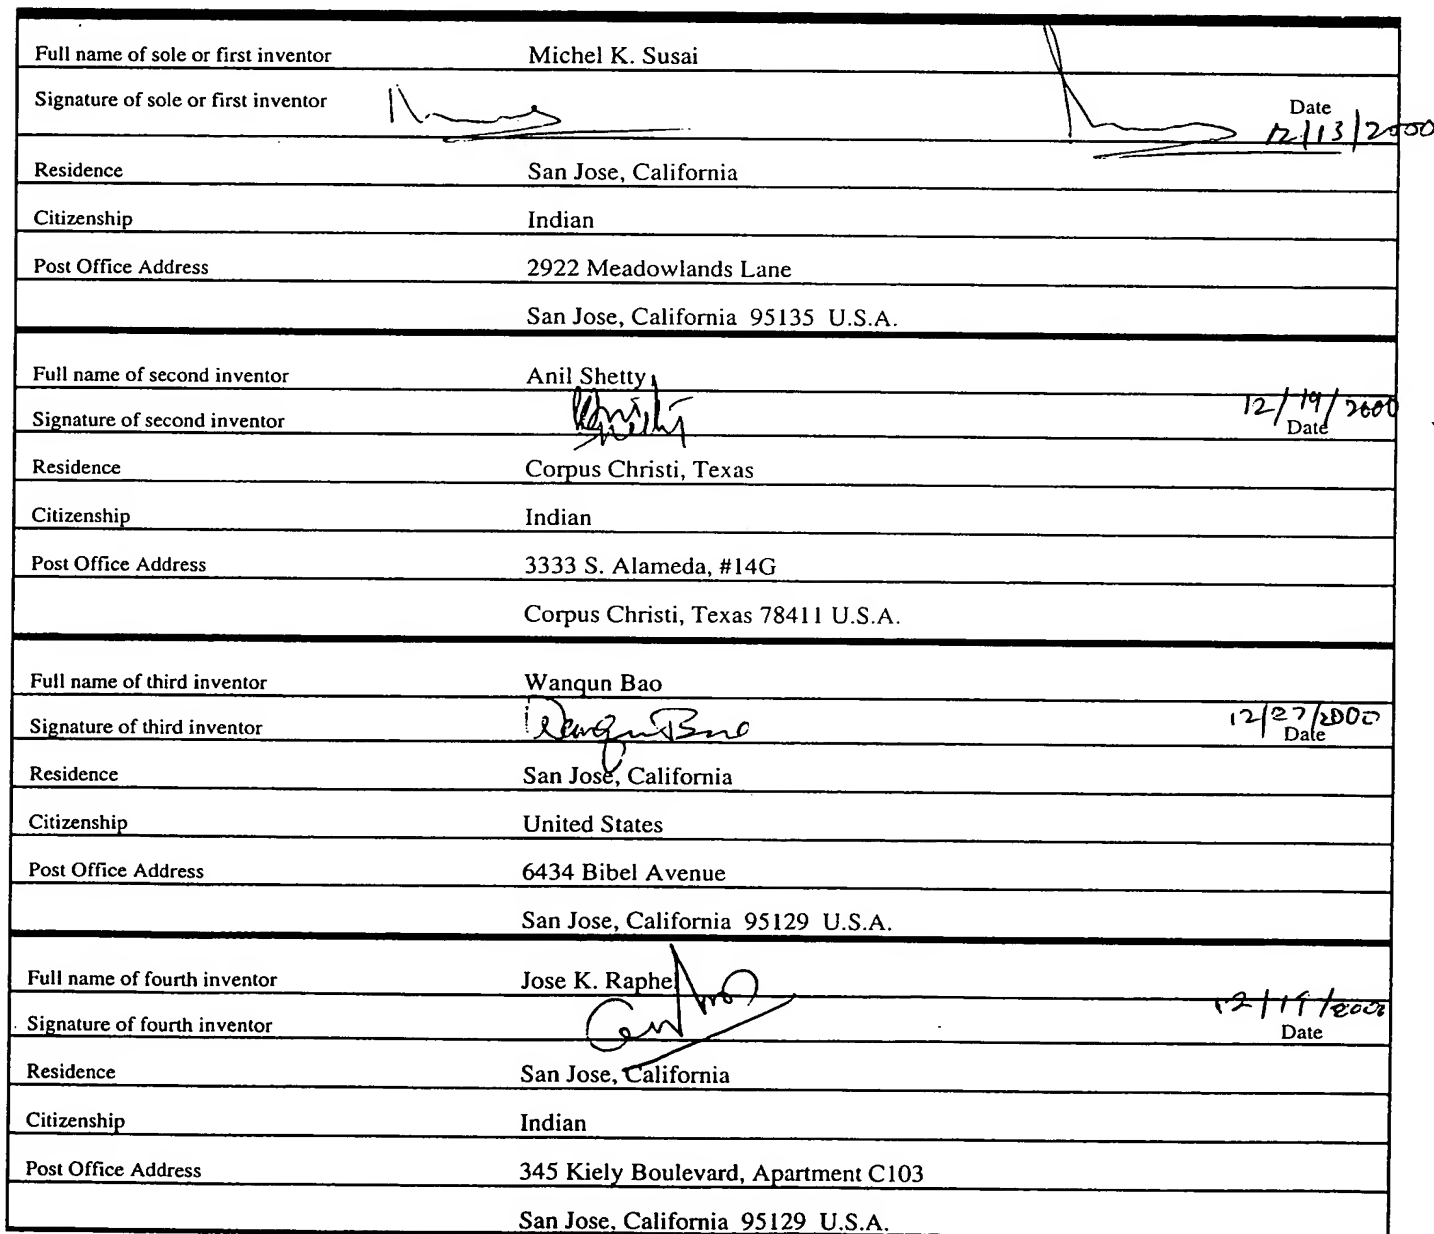 Full name of sole or first inventor Michel K. Susai
Signature of sole or first inventor Date
12/13/2000
Residence San Jose, California
Citizenship Indian
Post Office Address 2922 Meadowlands Lane
San Jose, California 95135 U.S.A.
Full name of second inventor Anil Shetty
12/19/2000
Signature of second inventor Date
Residence Corpus Christi, Texas
Citizenship Indian
Post Office Address 3333 S. Alameda, #14G
Corpus Christi, Texas 78411 U.S.A.
Full name of third inventor Wanqun Bao
Signature of third inventor Wanqun Bao 12/27/2000
Date
Residence San Jose, California
Citizenship United States
Post Office Address 6434 Bibel Avenue
San Jose, California 95129 U.S.A.
Full name of fourth inventor Jose K. Raphel
12/19/2000
Signature of fourth inventor Date
Residence San Jose, California
Citizenship Indian
Post Office Address 345 Kiely Boulevard, Apartment C103
San Jose, California 95129 U.S.A.